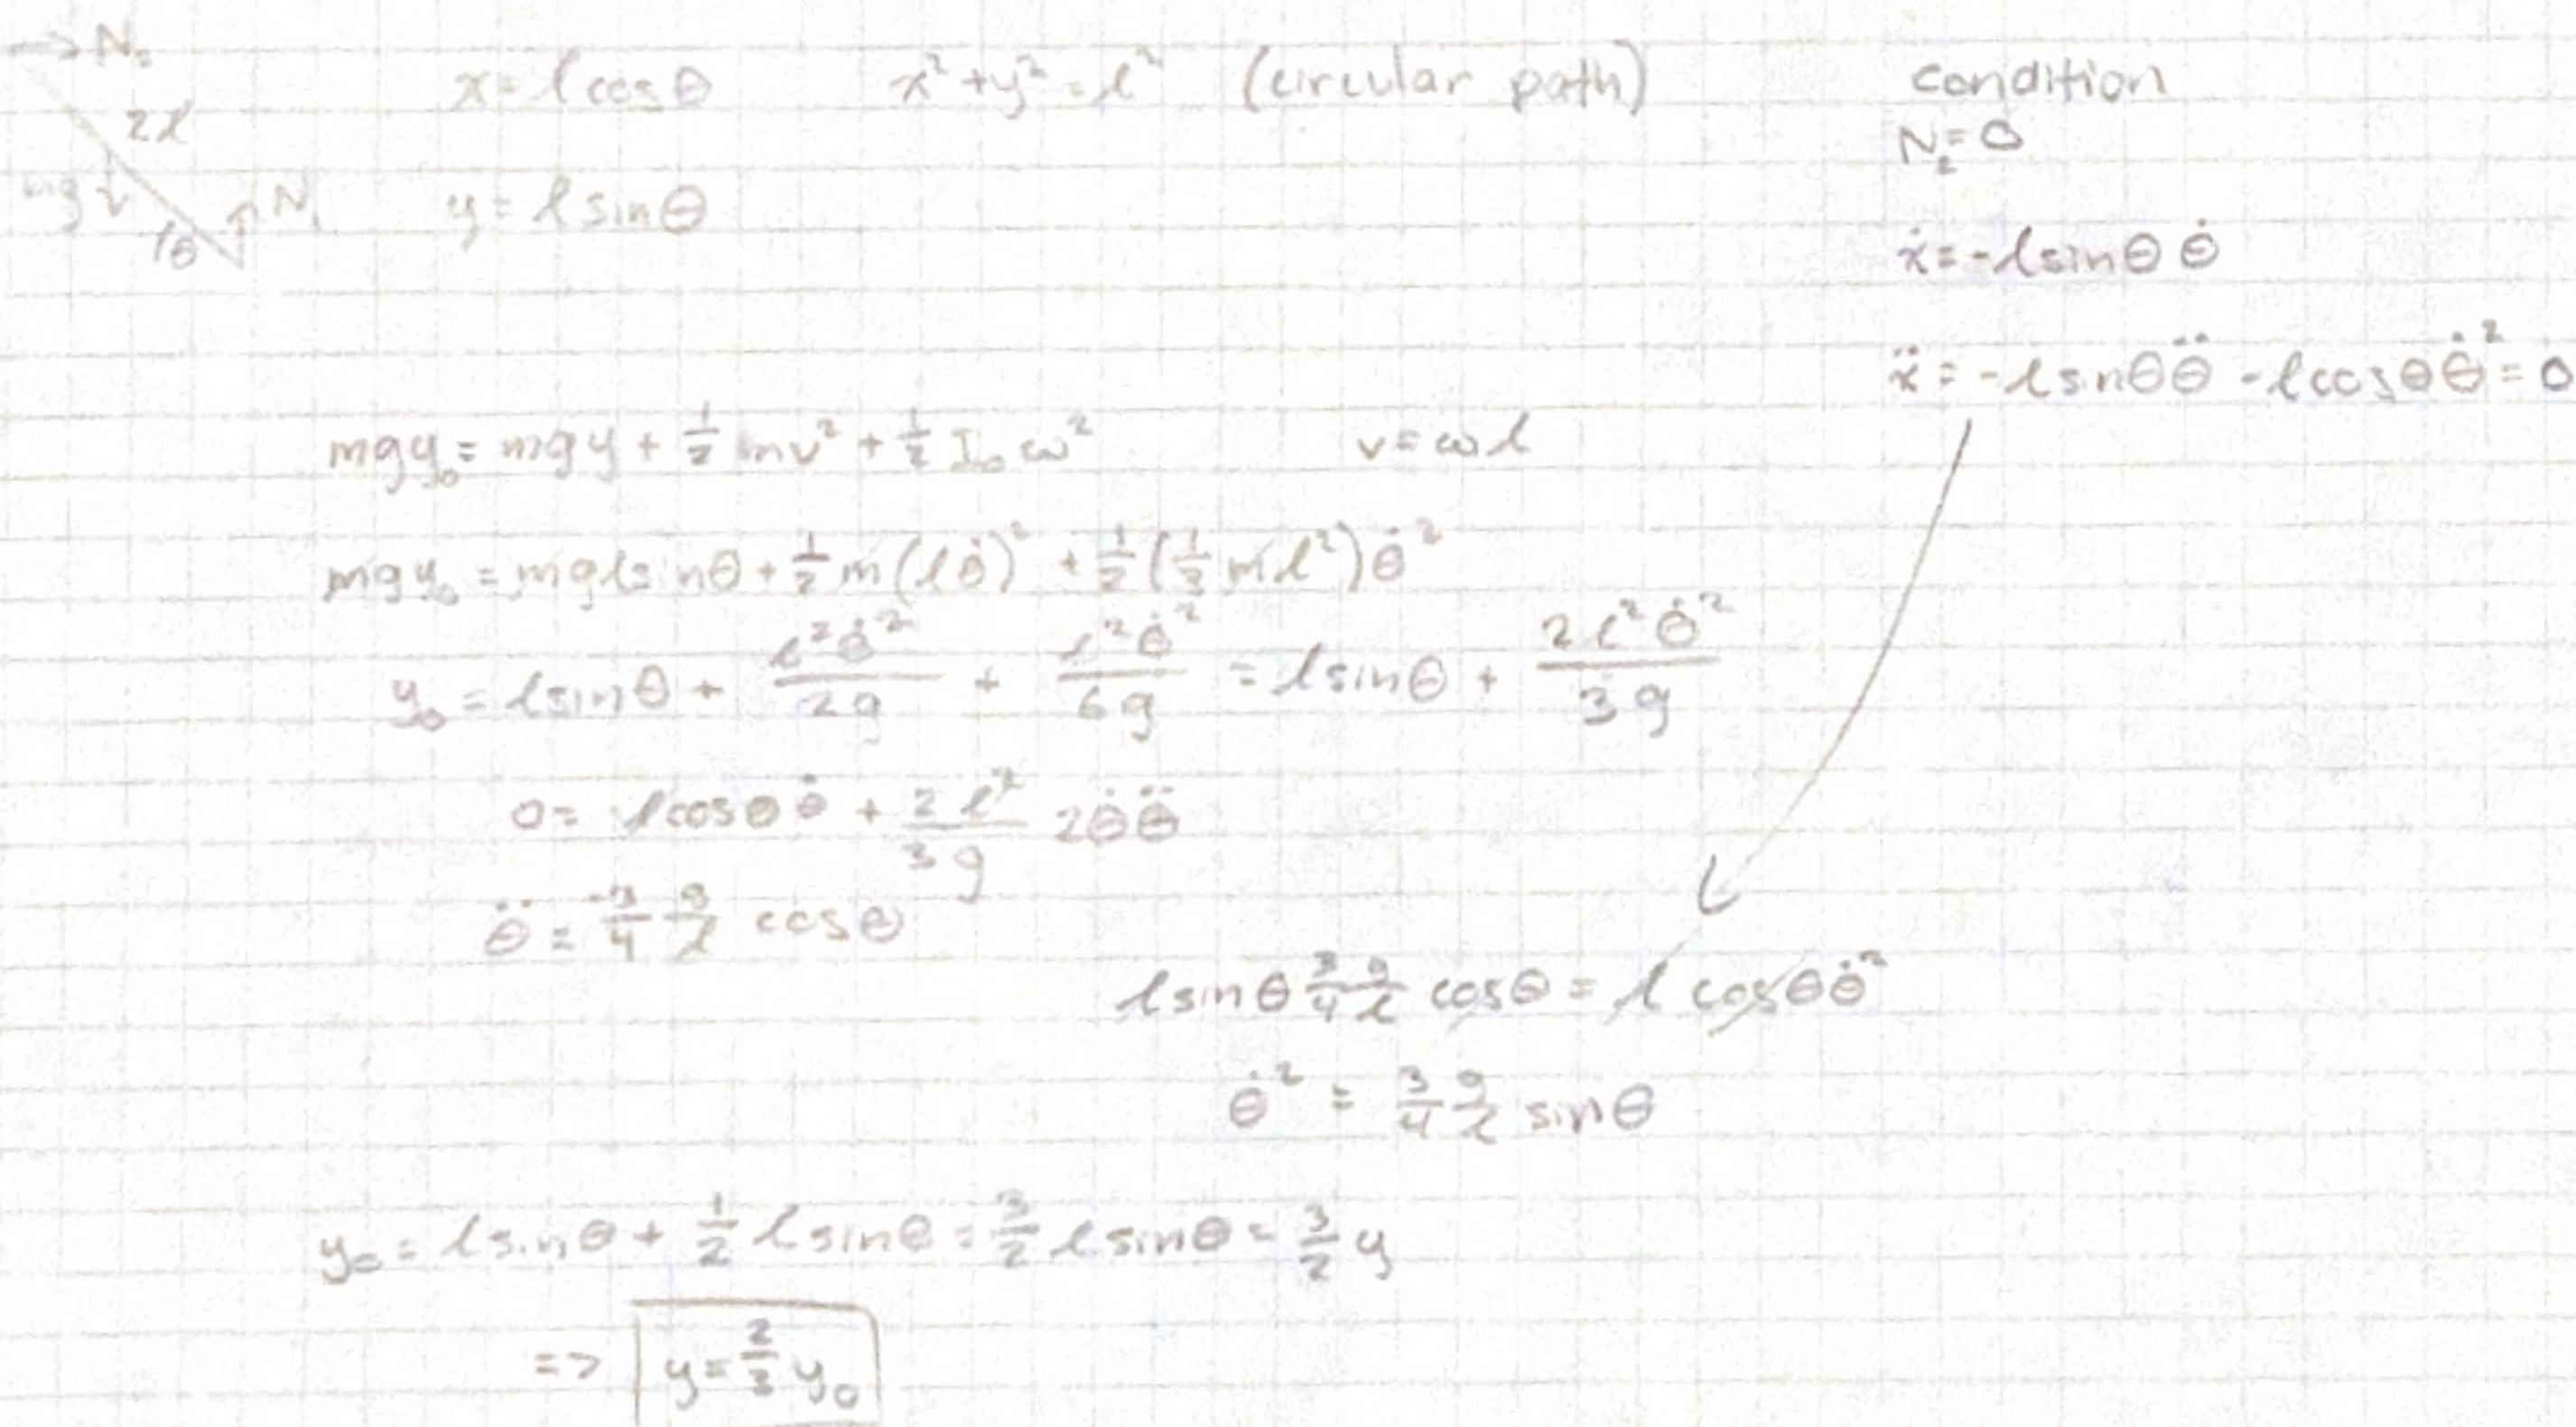 → N₂
x = l cosθ   x² + y² = l²   (circular path)   condition
2l
N₂ = 0
mg   N₁   y = l sinθ
θ
ẋ = -l sinθ θ̇
ẍ = -l sinθ θ̈ - l cosθ θ̇² = 0
mgy₀ = mgy + ½ mv² + ½ I₀ ω²   v = ωl
mgy₀ = mgl sinθ + ½ m(lθ̇)² + ½ (⅓ ml²) θ̇²
y₀ = l sinθ + l²θ̇²/2g + l²θ̇²/6g = l sinθ + 2l²θ̇²/3g
0 = l cosθ θ̇ + 2l²/3g 2θ̇θ̈
θ̈ = -3/4 g/l cosθ
l sinθ 3/4 g/l cosθ = l cosθ θ̇²
θ̇² = 3/4 g/l sinθ
y₀ = l sinθ + ½ l sinθ = 3/2 l sinθ = 3/2 y
=> y = 2/3 y₀